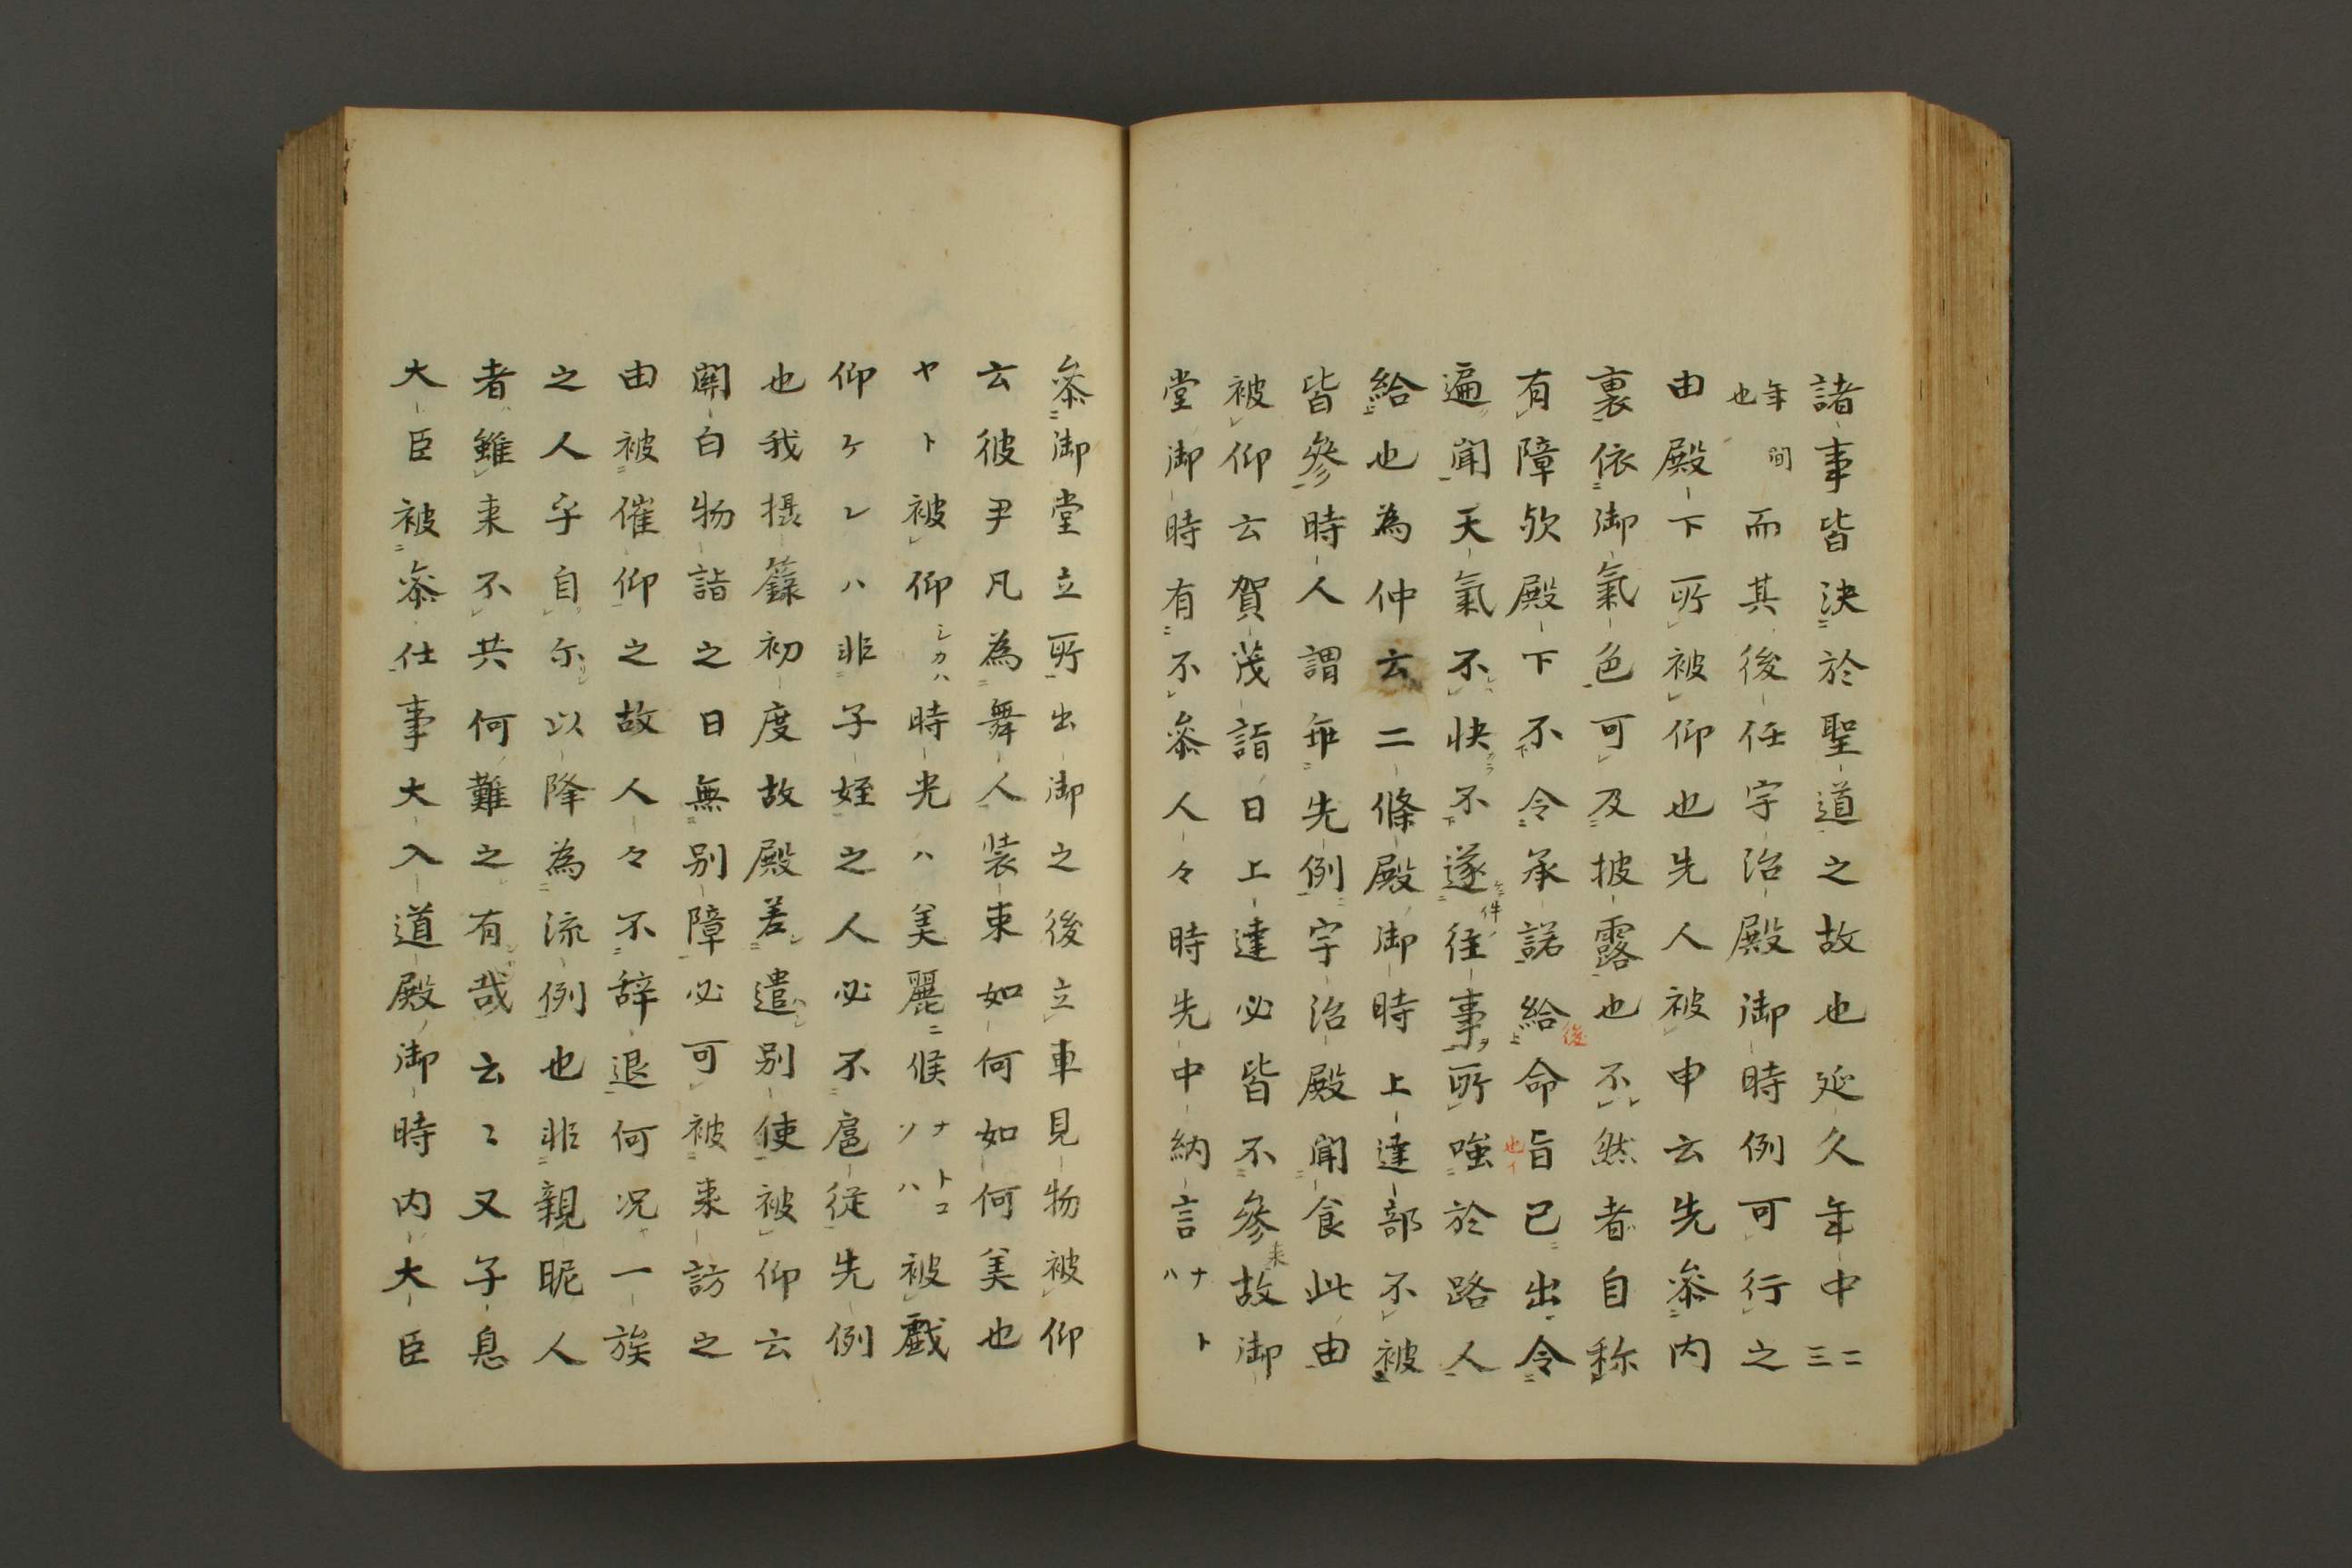 諸事皆決於聖道之故也延久年中二三
年間也而其後任宇治殿御時例可行之
由殿下所被仰也先人被申云先参内
裏依御氣色可及披露也不然者自称
有障欤殿下不令承諾給後命旨已出令
遍聞天氣不快不遂件徃事所嗤於路人也イ
給也為仲云二條殿御時上達部不被
皆参時人謂乖先例宇治殿聞食此由
被仰云賀茂詣日上達必皆不参来故御
堂御時有不参人々時先中納言ナトハ
参御堂立所出御之後立車見物被仰
云彼尹凡為舞人装束如何如何美也
ヤト被仰シカハ時光ハ美麗ニ候ナトコソハ被戯
仰ケレハ非子姪之人必不扈從先例
也我摂籙初度故殿差遣別使被仰云
関白物詣之日無別障必可被来訪之
由被催仰之故人々不辞退何况一族
之人乎自尓以降為流例也非親昵人
者雖来不共何難之有哉云〻又子息
大臣被参仕事大入道殿御時内大臣